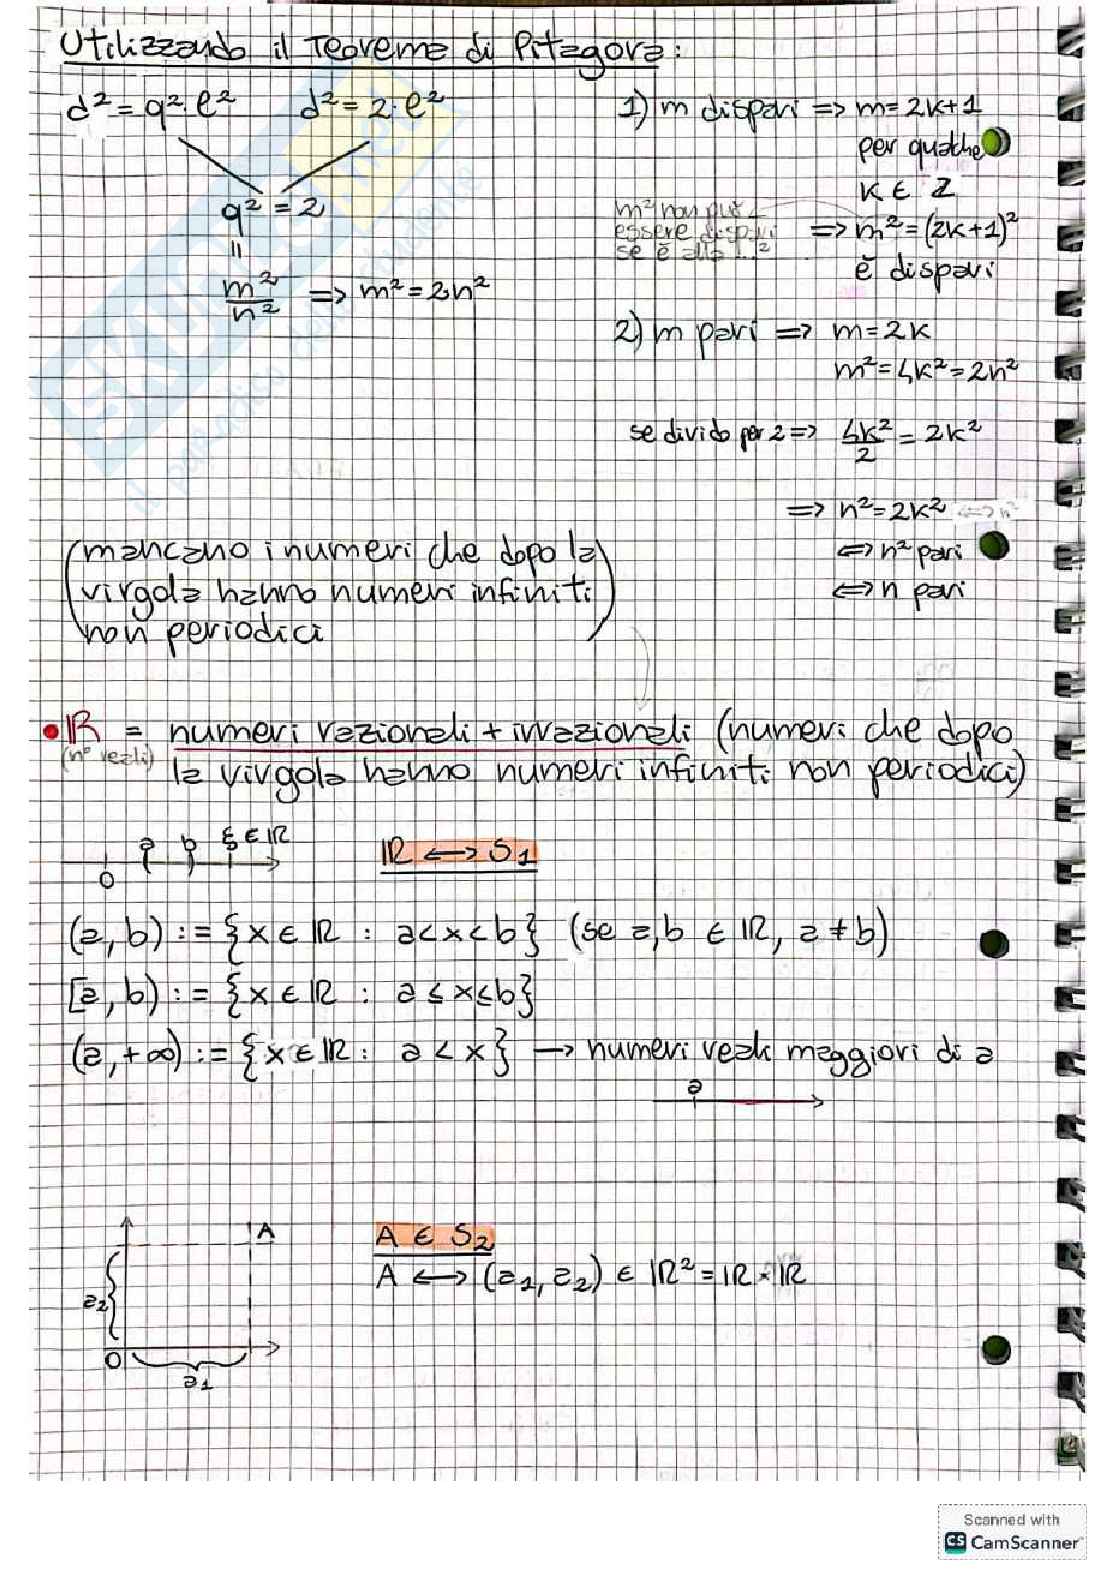 Utilizzando il Teorema di Pitagora:
d² = q²·l² d² = 2·l²
q² = 2
=
m²/n² => m² = 2n²
1) m dispari => m = 2k+1
per qualche
k ∈ Z
m² non può
essere dispari
se è alla ...²
=> m² = (2k+1)²
è dispari
2) m pari => m = 2k
m² = 4k² = 2n²
se divido per 2 => 4k²/2 = 2k²
=> n² = 2k² <=> n²
<=> n² pari
<=> n pari
(mancano i numeri che dopo la
virgola hanno numeri infiniti
non periodici)
• ℝ = numeri razionali + irrazionali (numeri che dopo
(n° reali) la virgola hanno numeri infiniti non periodici)
0 a b ξ ∈ ℝ
ℝ <-> S₁
(a, b) := {x ∈ ℝ : a < x < b} (se a, b ∈ ℝ, a ≠ b)
[a, b) := {x ∈ ℝ : a ≤ x ≤ b}
(a, +∞) := {x ∈ ℝ : a < x} → numeri reali maggiori di a
a
A
a₂
0
a₁
A ∈ S₂
A <-> (a₁, a₂) ∈ ℝ² = ℝ × ℝ
SKUOLA.net
il paradiso dello studente
Scanned with
CS CamScanner